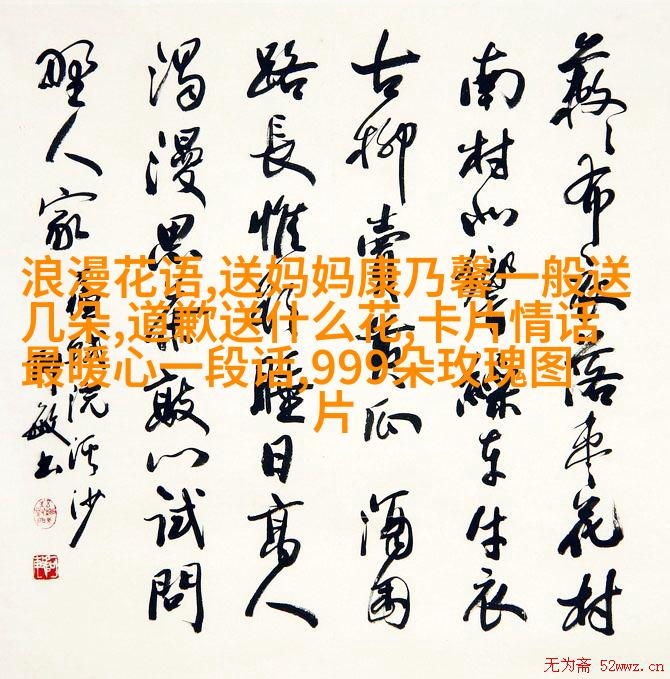 簌〻衣巾落枣花村
南村北響繰車牛衣
古柳賣黄瓜 酒困
路長惟欲睡日高人
渴漫思茶敲门试問
野人家
浣溪沙
敏书
浪漫花语,送妈妈康乃馨一般送
几朵,道歉送什么花,卡片情话
最暖心一段话,999朵玫瑰图
片
无为斋 52wwz.cn